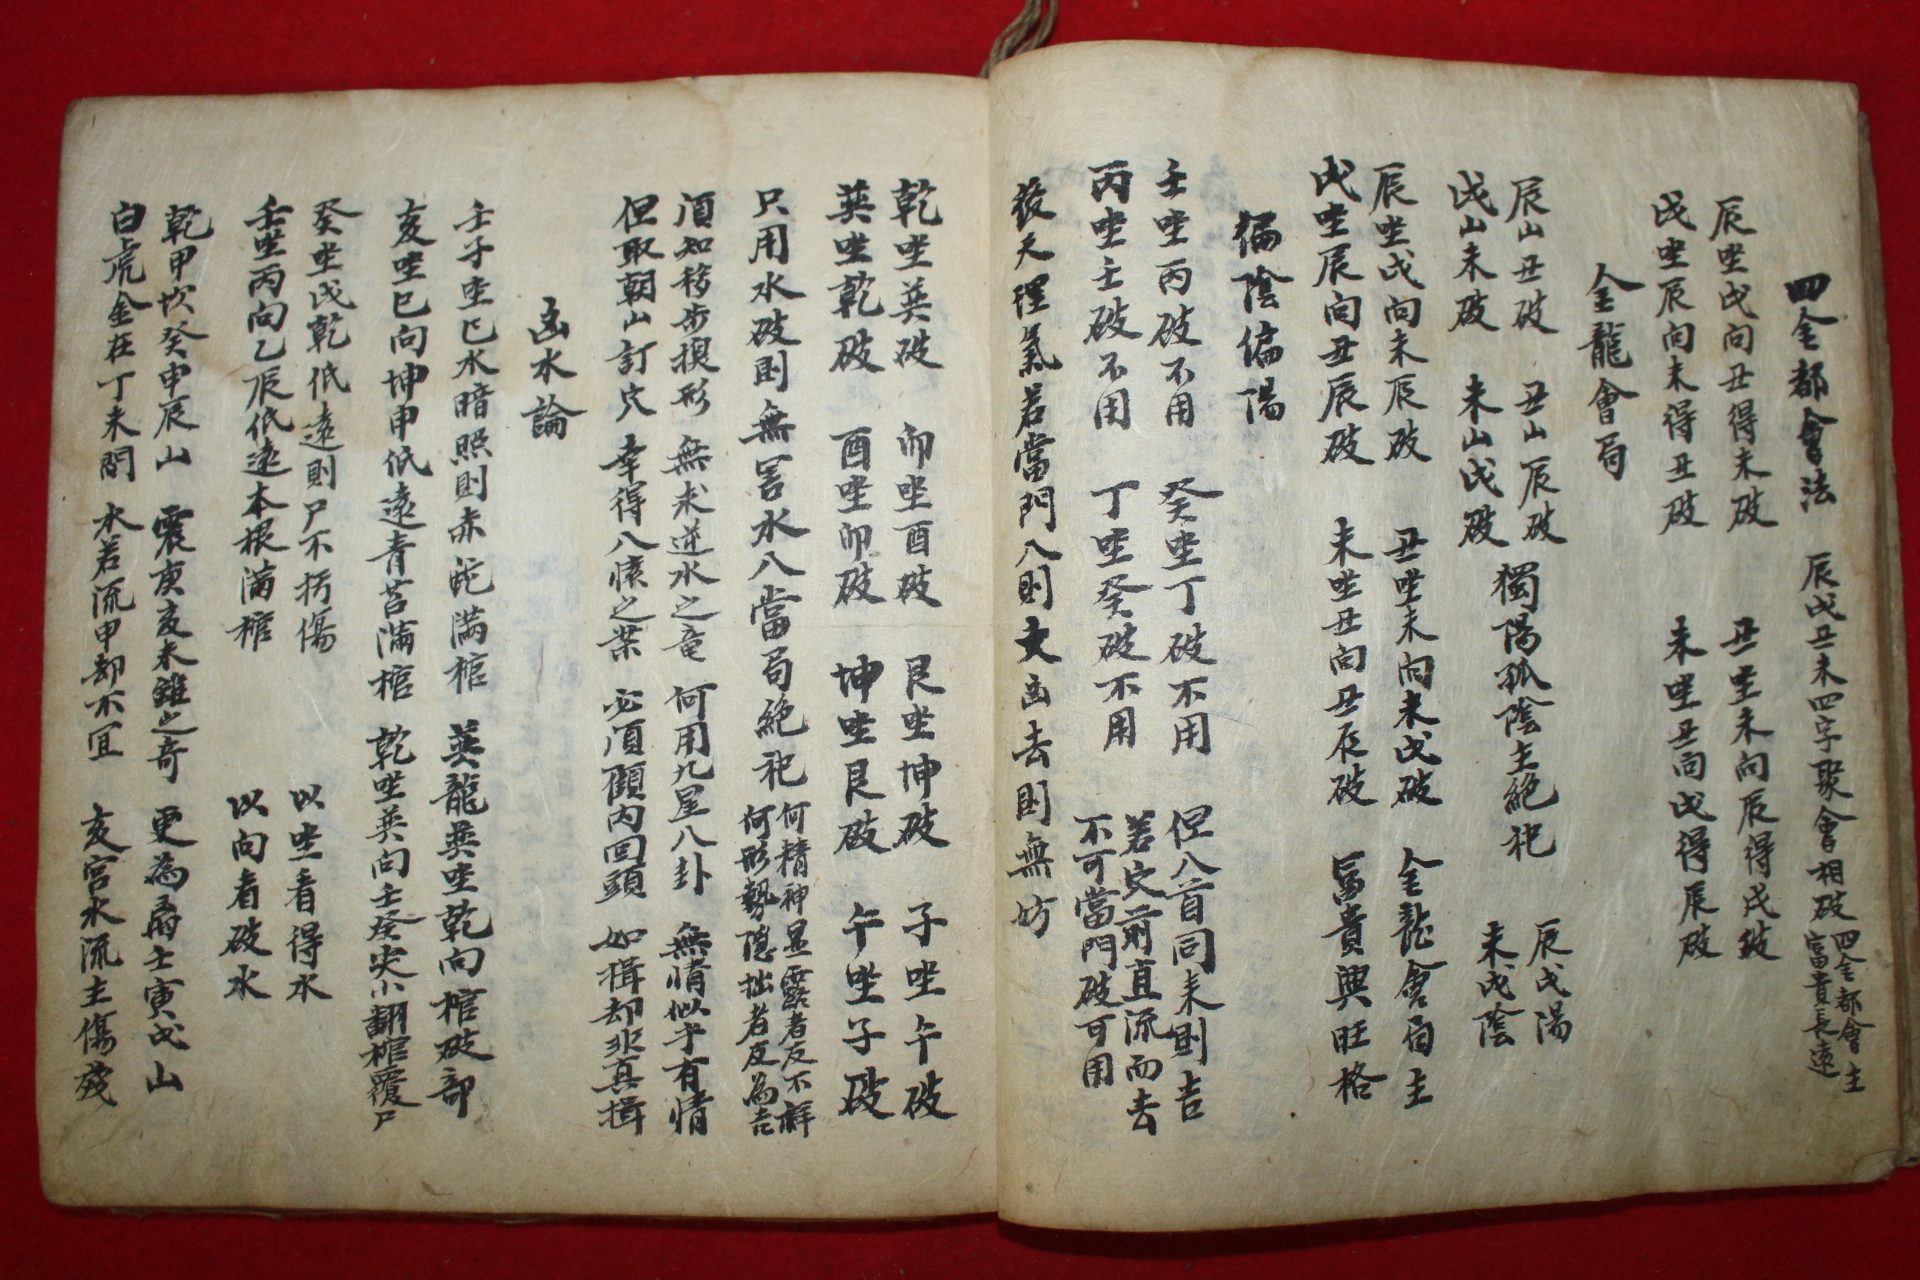 四金都會法 辰戌丑未四字聚會相破 四金都會主富貴長遠
辰坐戌向丑得未破 丑坐未向辰得戌破
戌坐辰向未得丑破 未坐丑向戌得辰破
金龍會局
辰山丑破 丑山辰破 獨陽孤陰主絕祀 辰戌陽
戌山未破 未山戌破 未戌陰
辰坐戌向未辰破 丑坐未向未戌破 金龍會局主
戌坐辰向丑辰破 未坐丑向丑辰破 富貴興旺格
猵陰偏陽
壬坐丙破不用 癸坐丁破不用 但八首同來則吉
丙坐壬破不用 丁坐癸破不用 若穴前直流而去不可當門破可用
後天理氣若當門八則大凶去則無妨
乾坐巽破 卯坐酉破 艮坐坤破 子坐午破
巽坐乾破 酉坐卯破 坤坐艮破 午坐子破
只用水破則無害水八當局絕祀 何精神显露者反不祥何形勢隱拙者反為吉
須知移步換形 無求逆水之竜 何用九星八卦 無情似乎有情
但取朝山訂穴 幸得八懷之案 必須顧內回頭 如揖却非真揖
凶水論
壬子坐巳水暗照則赤蛇滿棺 巽龍巽坐乾向棺破部
亥坐巳向坤申低遠青苔滿棺 乾坐巽向壬癸尖小翻棺覆尸
癸坐戌乾低遠則尸不朽傷 以坐看得水
壬坐丙向乙辰低遠本根滿棺 以向看破水
乾甲坎癸申辰山 震庚亥未雖之奇 更為離壬寅戌山
白虎金在丁未間 水若流甲却不宜 亥宮水流主傷殘